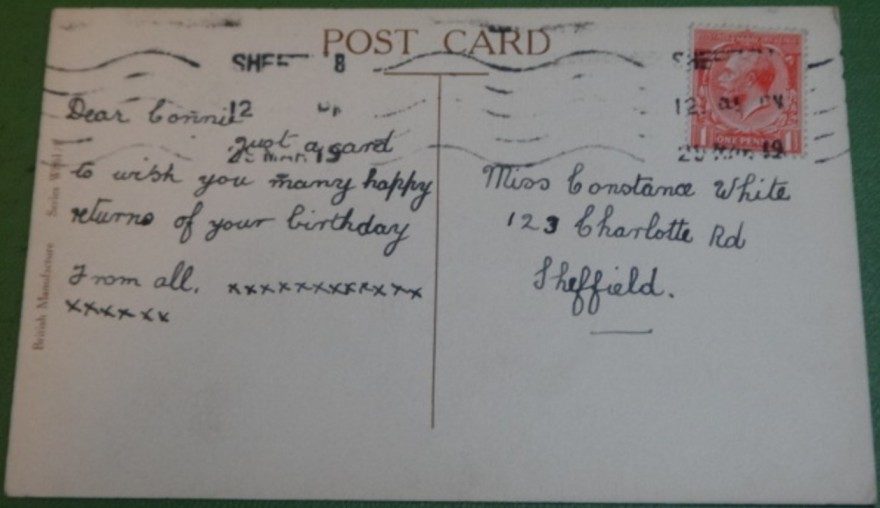 POST CARD
Dear Connie
Just a card
to wish you many happy
returns of your birthday
From all. xxxxxxxxxxxx
xxxxxx
Miss Constance White
123 Charlotte Rd
Sheffield.
British Manufacture
Series
ONE PENNY
12
19
12
19